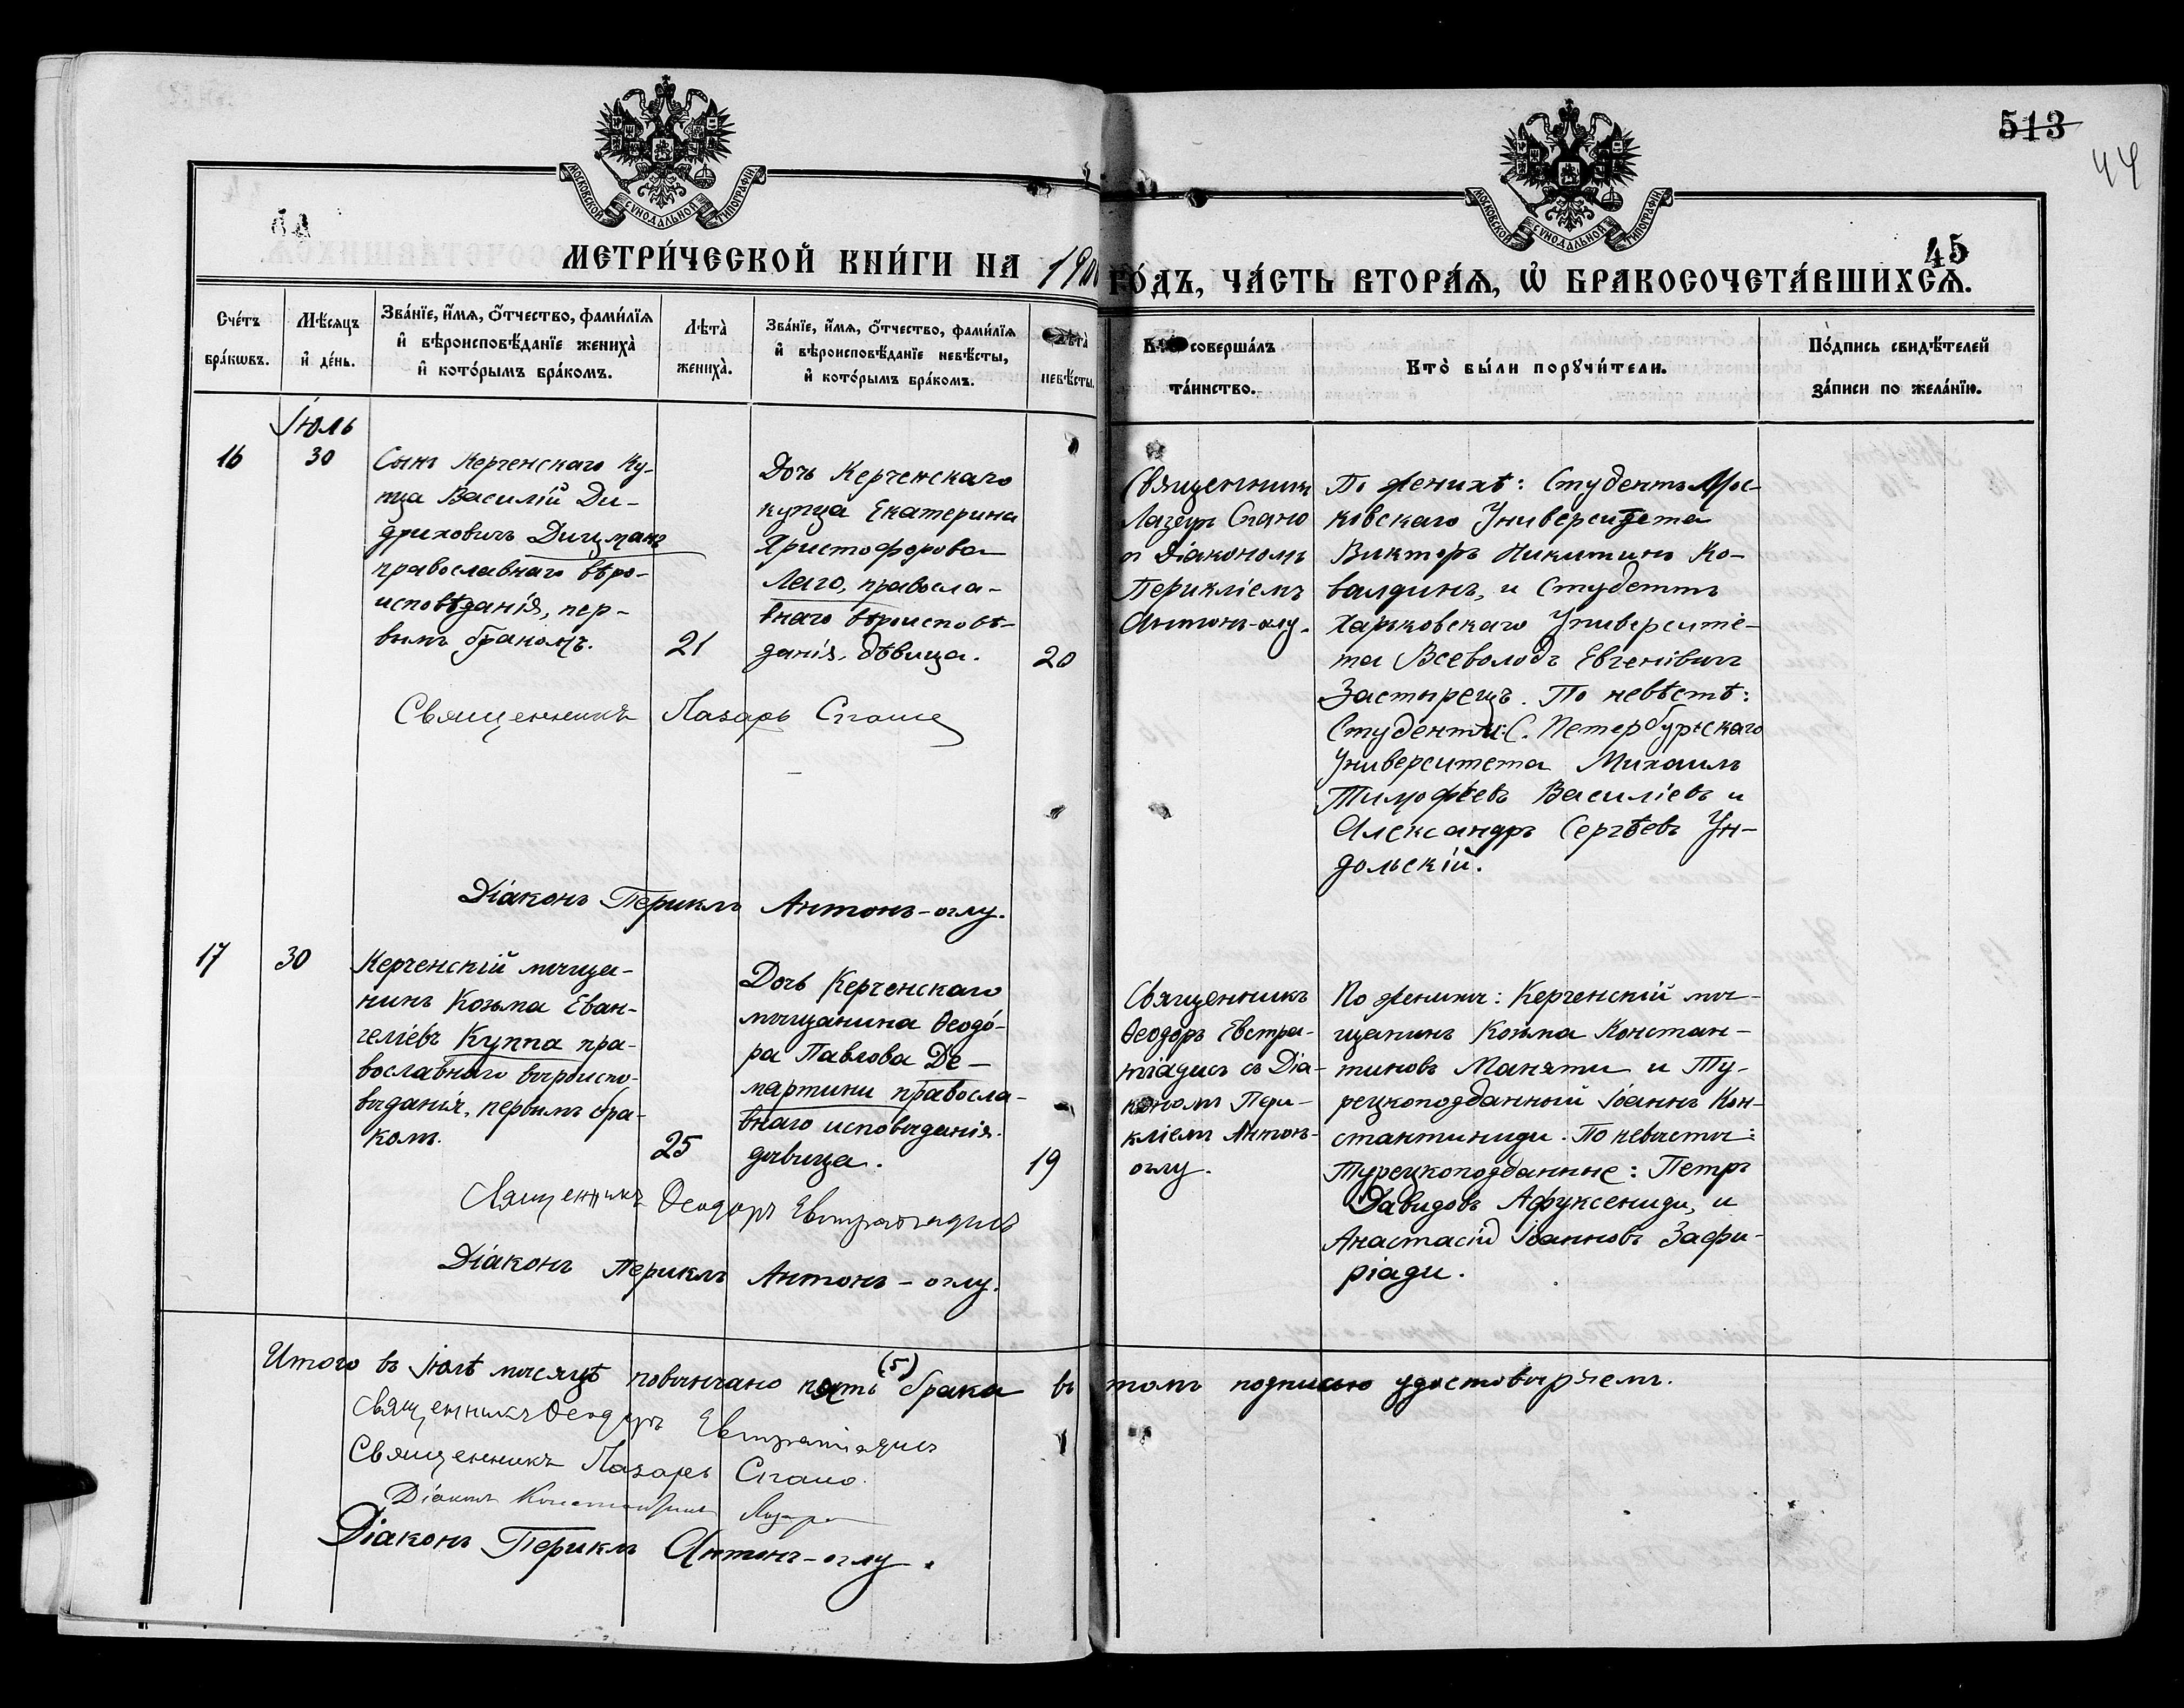 МОСКОВСКОЙ СѴНОДАЛЬНОЙ ТИПОГРАФІИ
МОСКОВСКОЙ СѴНОДАЛЬНОЙ ТИПОГРАФІИ
513
44
45
МЕТРИ́ЧЕСКОЙ КНИ́ГИ НА 190
ГО́ДЪ, ЧА́СТЬ ВТОРА́Я, Ѡ БРАКОСОЧЕТА́ВШИХСЯ.
Сче́тъ бра́кωвъ.
Мѣ́сяцъ и де́нь.
Зва́нїе, и́мя, о́тчество, фами́лїя и вѣроисповѣ́данїе жениха̀ и кото́рымъ бра́комъ.
Лѣта̀ жениха̀.
Зва́нїе, и́мя, о́тчество, фами́лїя и вѣроисповѣ́данїе невѣ́сты, и кото́рымъ бра́комъ.
Лѣта̀ невѣ́сты.
Кто̀ соверша́лъ та́инство.
Кто̀ бы́ли порꙋчи́тели.
По́дпись свидѣ́телей за́писи по жела́нїю.
Іюль
16
30
Сынъ Керченскаго Ку-
пца Василій Ди-
дриховичъ Дицманъ
православнаго вѣро-
исповѣданія, пер-
вымъ бракомъ.
21
Дочь Керченскаго
купца Екатерина
Христофорова
Лаго, правосла-
внаго вѣроисповѣ-
данія. дѣвица.
20
Священникъ
Лазарь Спано
съ Діакономъ
Перикліемъ
Антонъ-оглу.
По женихѣ: Студентъ Мос-
ковскаго Университета
Викторъ Никитинъ Ко-
валдинъ, и Студентъ
Харьковскаго Университе-
та Всеволодъ Евгеніевичъ
Застырецъ. По невѣстѣ:
Студенты: С. Петербургскаго
Университета Михаилъ
Тимофѣевъ Василіевъ и
Александръ Сергѣевъ Ун-
дольскій.
Священникъ Лазарь Спано
Діаконъ Периклъ Антонъ-оглу.
17
30
Керченскій мѣща-
нинъ Козьма Еван-
геліевъ Куппа пра-
вославнаго вѣроиспо-
вѣданія, первымъ бра-
комъ.
25
Дочь Керченскаго
мѣщанина Ѳеодо́-
ра Павлова Де-
мартини правосла-
внаго исповѣданія.
дѣвица.
19
Священникъ
Ѳеодоръ Евстра-
тіадисъ съ Діа-
кономъ Пери-
кліемъ Антонъ-
оглу.
По женихѣ: Керченскій мѣ-
щанинъ Козьма Констан-
тиновъ Маняти и Ту-
рецкоподданный Іоаннъ Кон-
стантиниди. По невѣстѣ:
Турецкоподданные: Петръ
Давидовъ Афуксениди, и
Анастасій Іоанновъ Зафи-
ріади.
Священникъ Ѳеодоръ Евстратіадисъ
Діаконъ Периклъ Антонъ-оглу.
Итого въ Іюлѣ мѣсяцѣ повѣнчано пять (5) брака въ томъ подписью удостовѣряемъ.
Священникъ Ѳеодоръ Евстратіадисъ
Священникъ Лазарь Спано.
Діаконъ Константинъ
Діаконъ Периклъ Антонъ-оглу.